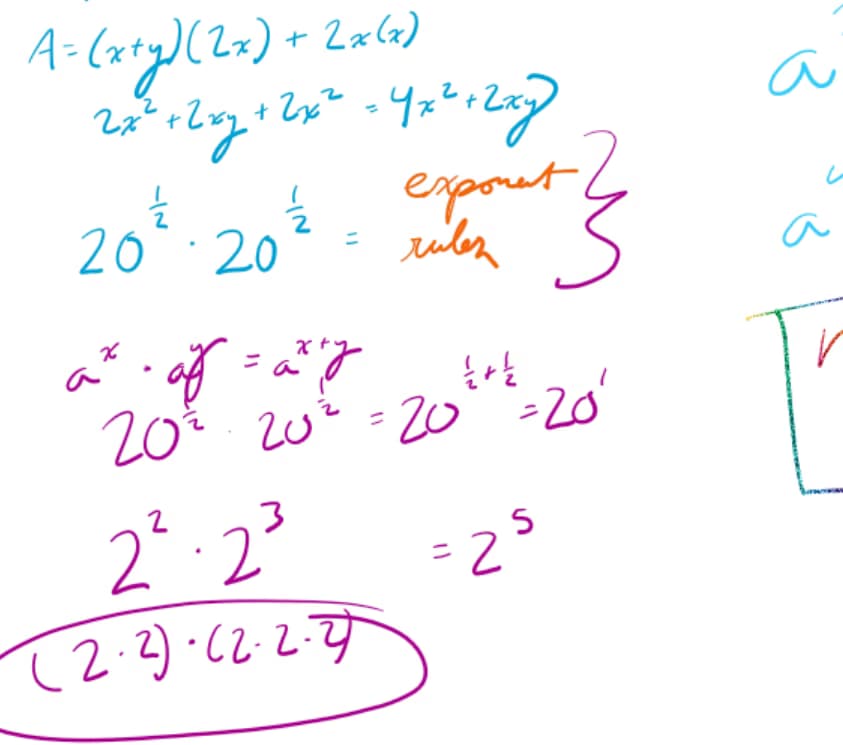 A = (x+y)(2x) + 2x(x)
2x² + 2xy + 2x² = 4x² + 2xy
20^(1/2) · 20^(1/2) =
exponent
rules
a^x · a^y = a^(x+y)
20^(1/2) · 20^(1/2) = 20^(1/2+1/2) = 20¹
2² · 2³ = 2⁵
(2·2)·(2·2·2)
a
a